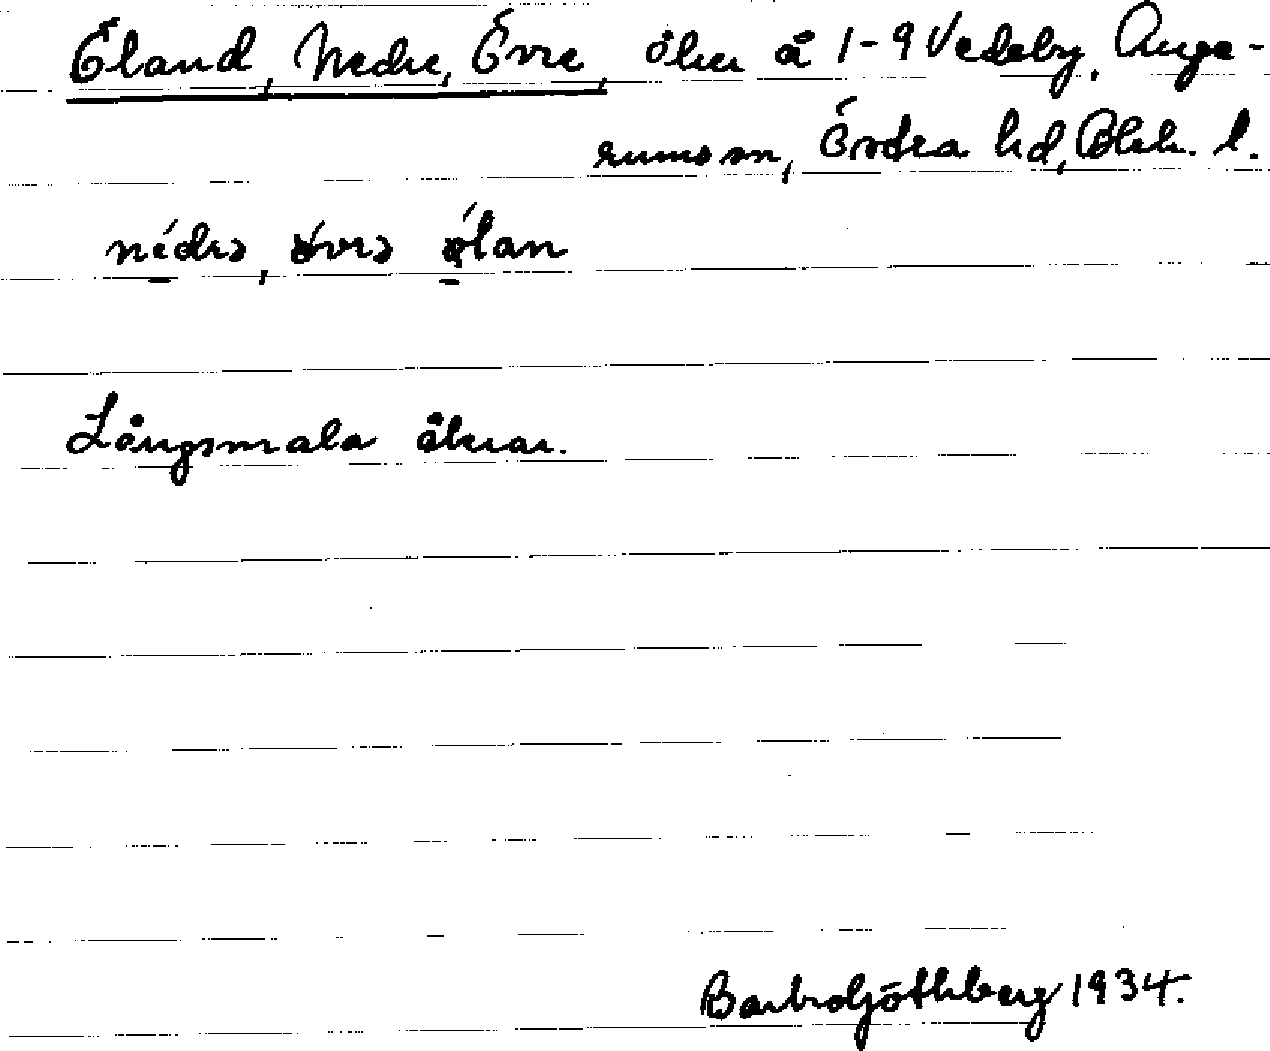 Öland, Nedre, Övre, åker å 1-9 Vedeby, Auge-
rums sn, Östra hd, Blek. l.
nédrə, øvrə ǿlan
Långsmala åkrar.
Barbro Göthberg 1934.